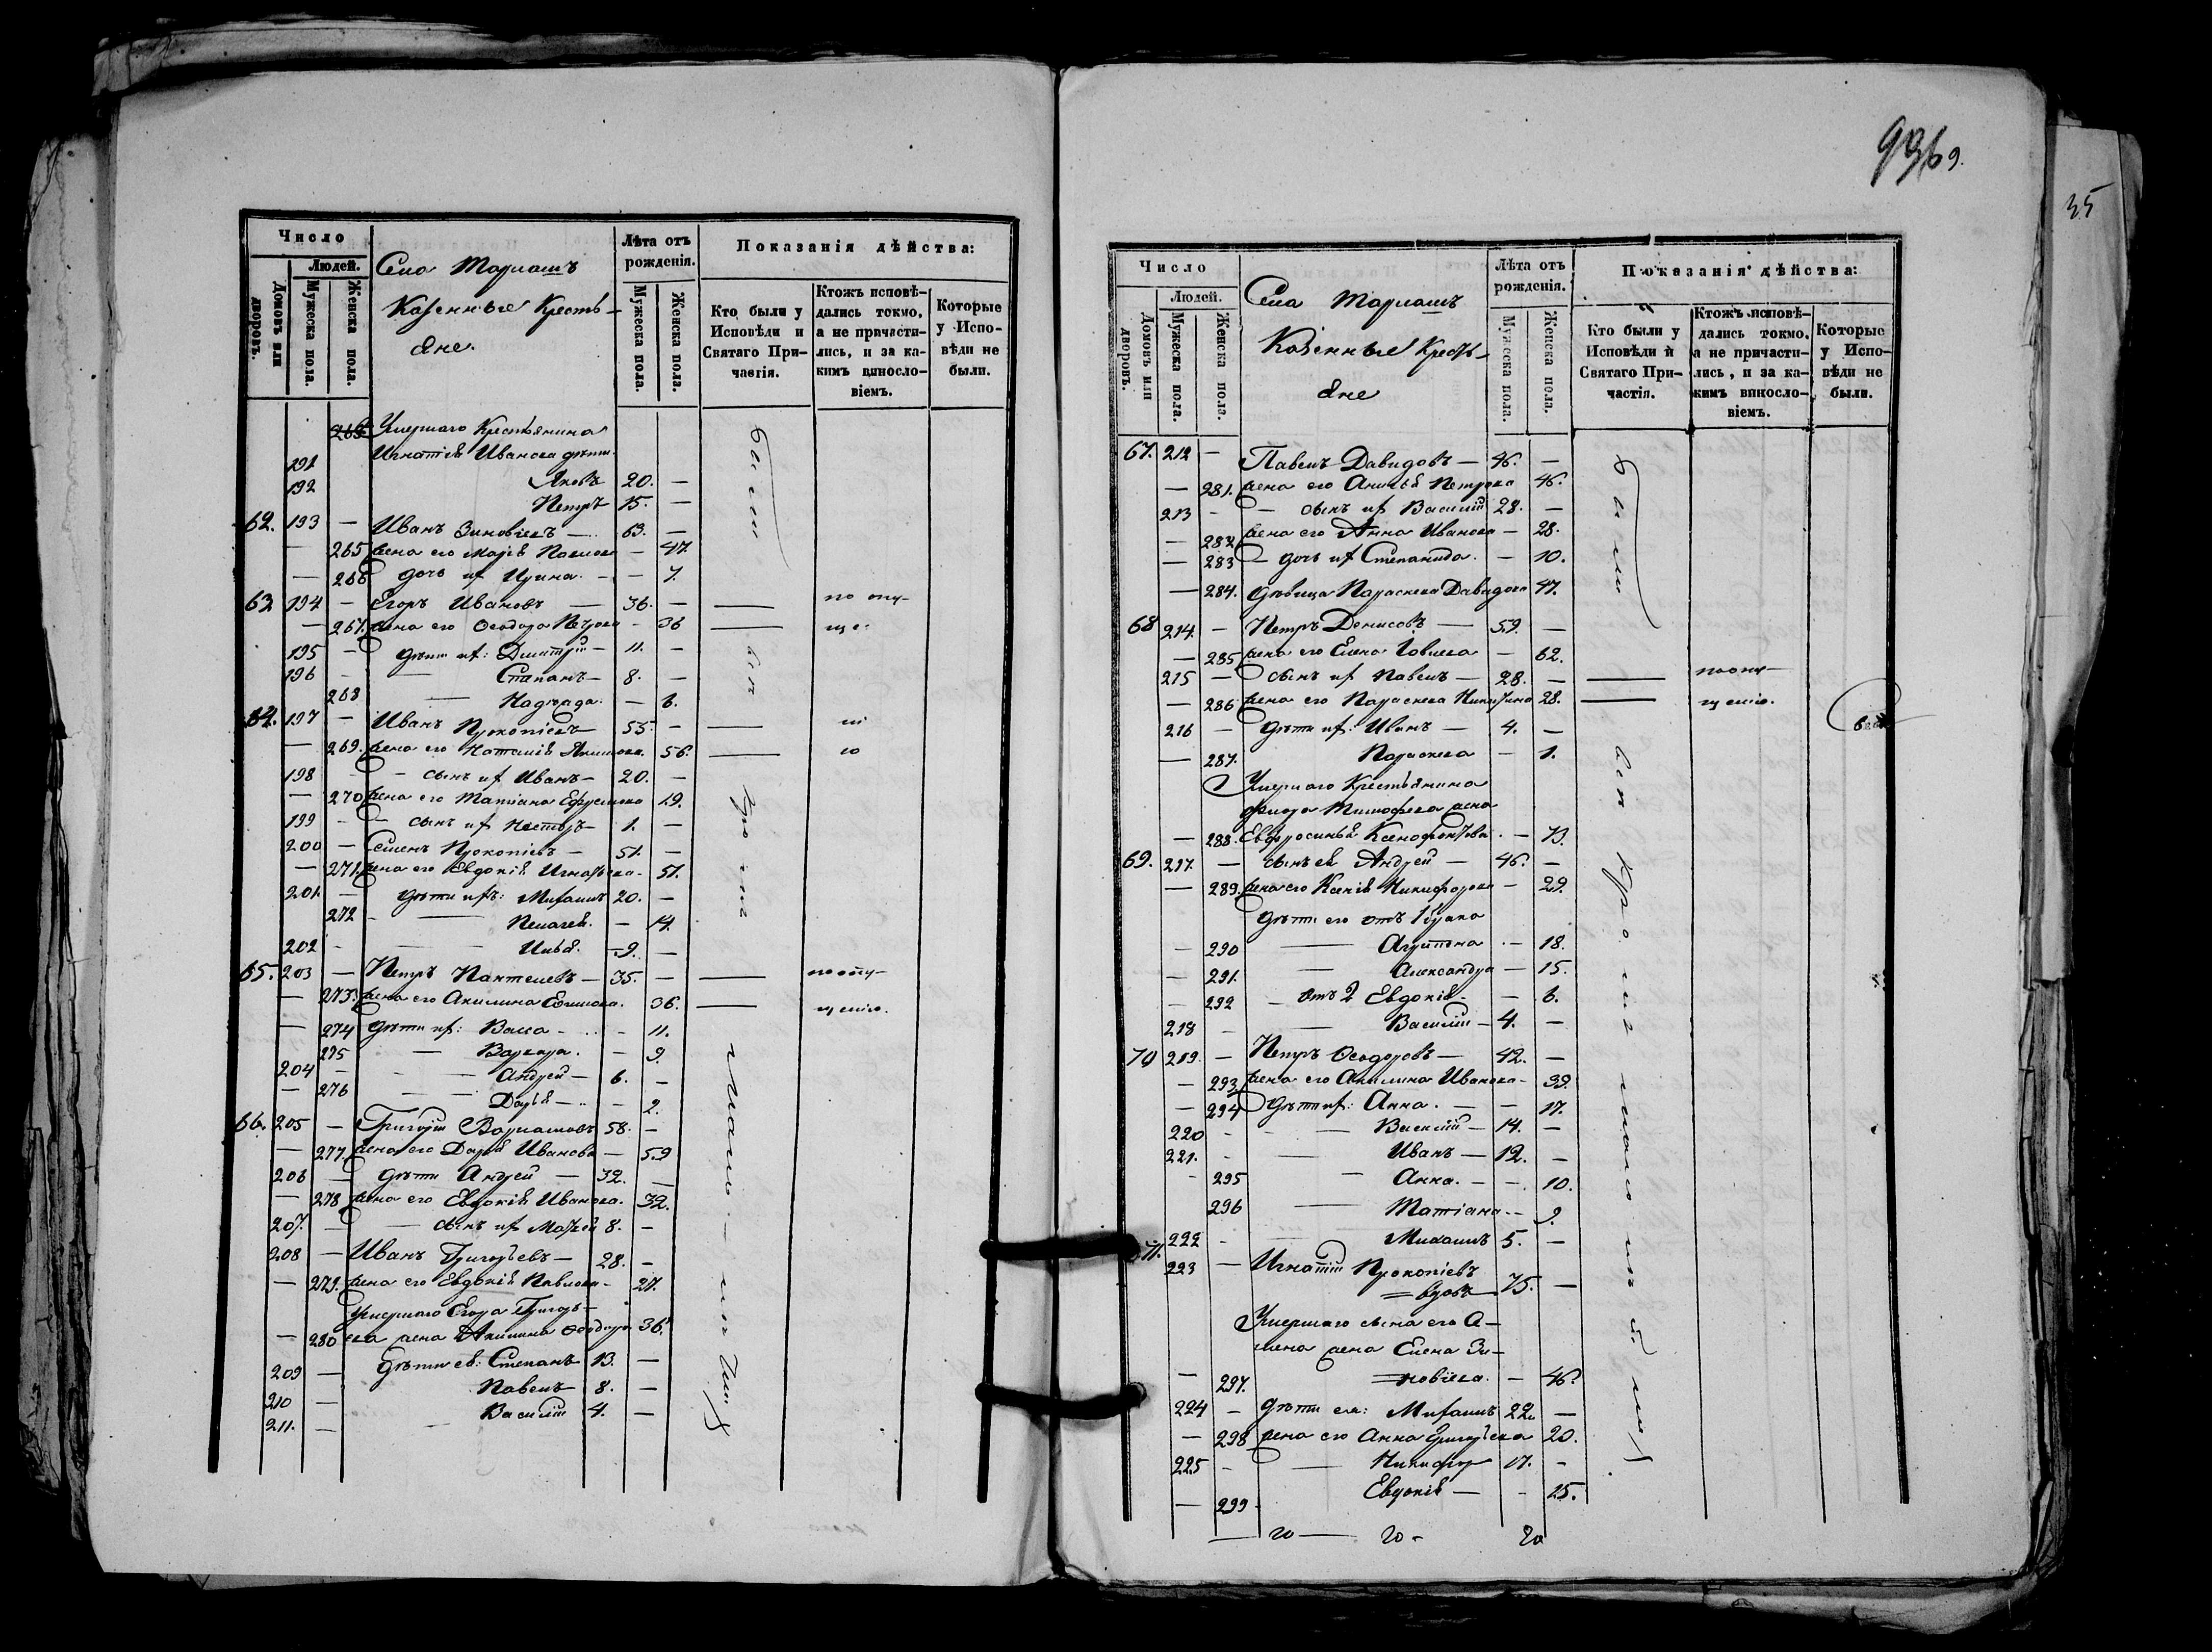 Число
Людей.
Домовъ или дворовъ.
Мужеска пола.
Женска пола.
Села
Казенные Кресть-
яне.
Лѣта отъ рожденія.
Мужеска пола.
Женска пола.
Показанія дѣйства:
Кто были у Исповѣди и Святаго При-частія.
Ктожъ исповѣ-дались токмо, а не причасти-лись, и за ка-кимъ виносло-віемъ.
Которые у Испо-вѣди не были.
Умершаго Крестьянина
Игнатія Иванова дѣти
191 Яковъ 20. —
192 Петръ 15. —
62. 193 — Иванъ Зиновіевъ — 63. —
— 265 жена его Марія Павлова — 47.
— 266 дочь их Ирина. — — 7.
63 194 — Егоръ Ивановъ — 36. — — по опу-
— 267. жена его Ѳеодора Петрова — 36 —
195 — дѣти их: Дмитрій — 11. —
196 — Степанъ — 8. —
268 — Надежда. — 6.
64. 197 — Иванъ Прокопіевъ 55 — —
— 269. жена его Наталія Акимова 56. —
198 — сынъ их Иванъ — 20. —
— 270 жена его Татіана Ефремова 19.
199 — сынъ их Несторъ — 1. —
200 — Семенъ Прокопіевъ — 51. —
— 271. жена его Евдокія Игнатьева — 51.
201. — дѣти ихъ: Михаилъ 20. —
272 — Пелагея. — 14.
202 — Илья. — 9. —
65. 203 — Петръ Пантелевъ — 35. — — по опу-
— 273. жена его Акилина 36. — щенію.
— 274 дѣти их: Васса — 11.
275 — Варвара. — 9.
204 — Андрей — 6. —
— 276 — Дарья — 2.
66. 205 — Григорій Варламовъ 58. —
— 277. жена его Дарья Иванова — 59
206 — дѣти Андрей — 32. —
— 278 жена его Евдокія Иванова. 32.
207. — сынъ их Матвей 8. —
208 — Иванъ Григорьевъ — 28. —
— 279. жена его Евдокія Павлова — 27.
умершаго Егора Григорь-
— 280 ева жена Акилина Ѳеодоро 36.
209 — дѣти ея: Степанъ 13. —
210 — Павелъ 8. —
211. — Василій 4. —
были
9.
35
Число
Людей.
Домовъ или дворовъ.
Мужеска пола.
Женска пола.
Села
Казенные Кресть-
яне
Лѣта отъ рожденія.
Мужеска пола.
Женска пола.
Показанія дѣйства:
Кто были у Исповѣди и Святаго При-частія.
Ктожъ исповѣ-дались токмо, а не причасти-лись, и за ка-кимъ виносло-віемъ.
Которые у Испо-вѣди не были.
67. 212 — Павелъ Давидовъ — 46. —
— 281. жена его Анисья Петрова 46.
213 — сынъ их Василій 28. —
— 282 жена его Анна Иванова — 28.
— 283 — дочь их Степанида. — 10.
— 284. дѣвица Параскева Давидова 47.
68 214. — Петръ Денисовъ — 59. —
— 285 жена его Елена Іовлева — 62.
215 — сынъ их Павелъ — 28. — — по опу-
— 286 жена его Параскева Никитина 28. — щенію.
216 — дѣти их: Иванъ — 4. —
— 287. Параскева — 1.
Умершаго Крестьянина
Тимофеева жена
— 288. Евфросинья Ксенофонтова — 73.
69. 217. — сынъ ея Андрей — 46. —
— 289. жена его Ксенія Никифорова — 29.
дѣти его отъ 1 брака
— 290 — Агрипена — 18.
— 291. — Александра — 15.
— 292 — отъ 2 Евдокія — — 6.
218 — Василій — 4. —
70 219. — Петръ Ѳеодоровъ — 42. —
— 293 жена его Акилина Иванова — 39.
— 294 дѣти их: Анна. — — 17.
220 — Василій — 14. —
221. — Иванъ — 12. —
— 295 — Анна. — — 10.
296 — Татіана — 9.
222 — Михаилъ 5. —
71. 223 — Игнатій Прокопіевъ
вдовъ 75. —
Умершаго сына его
жена Елена Зи-
— 297. новіева. — 46.
224 — дѣти ея: Михаилъ 22. —
— 298 жена его Анна Григорьева 20.
225 — Никифор 17. —
— 299 Евдокія — — 15.
были